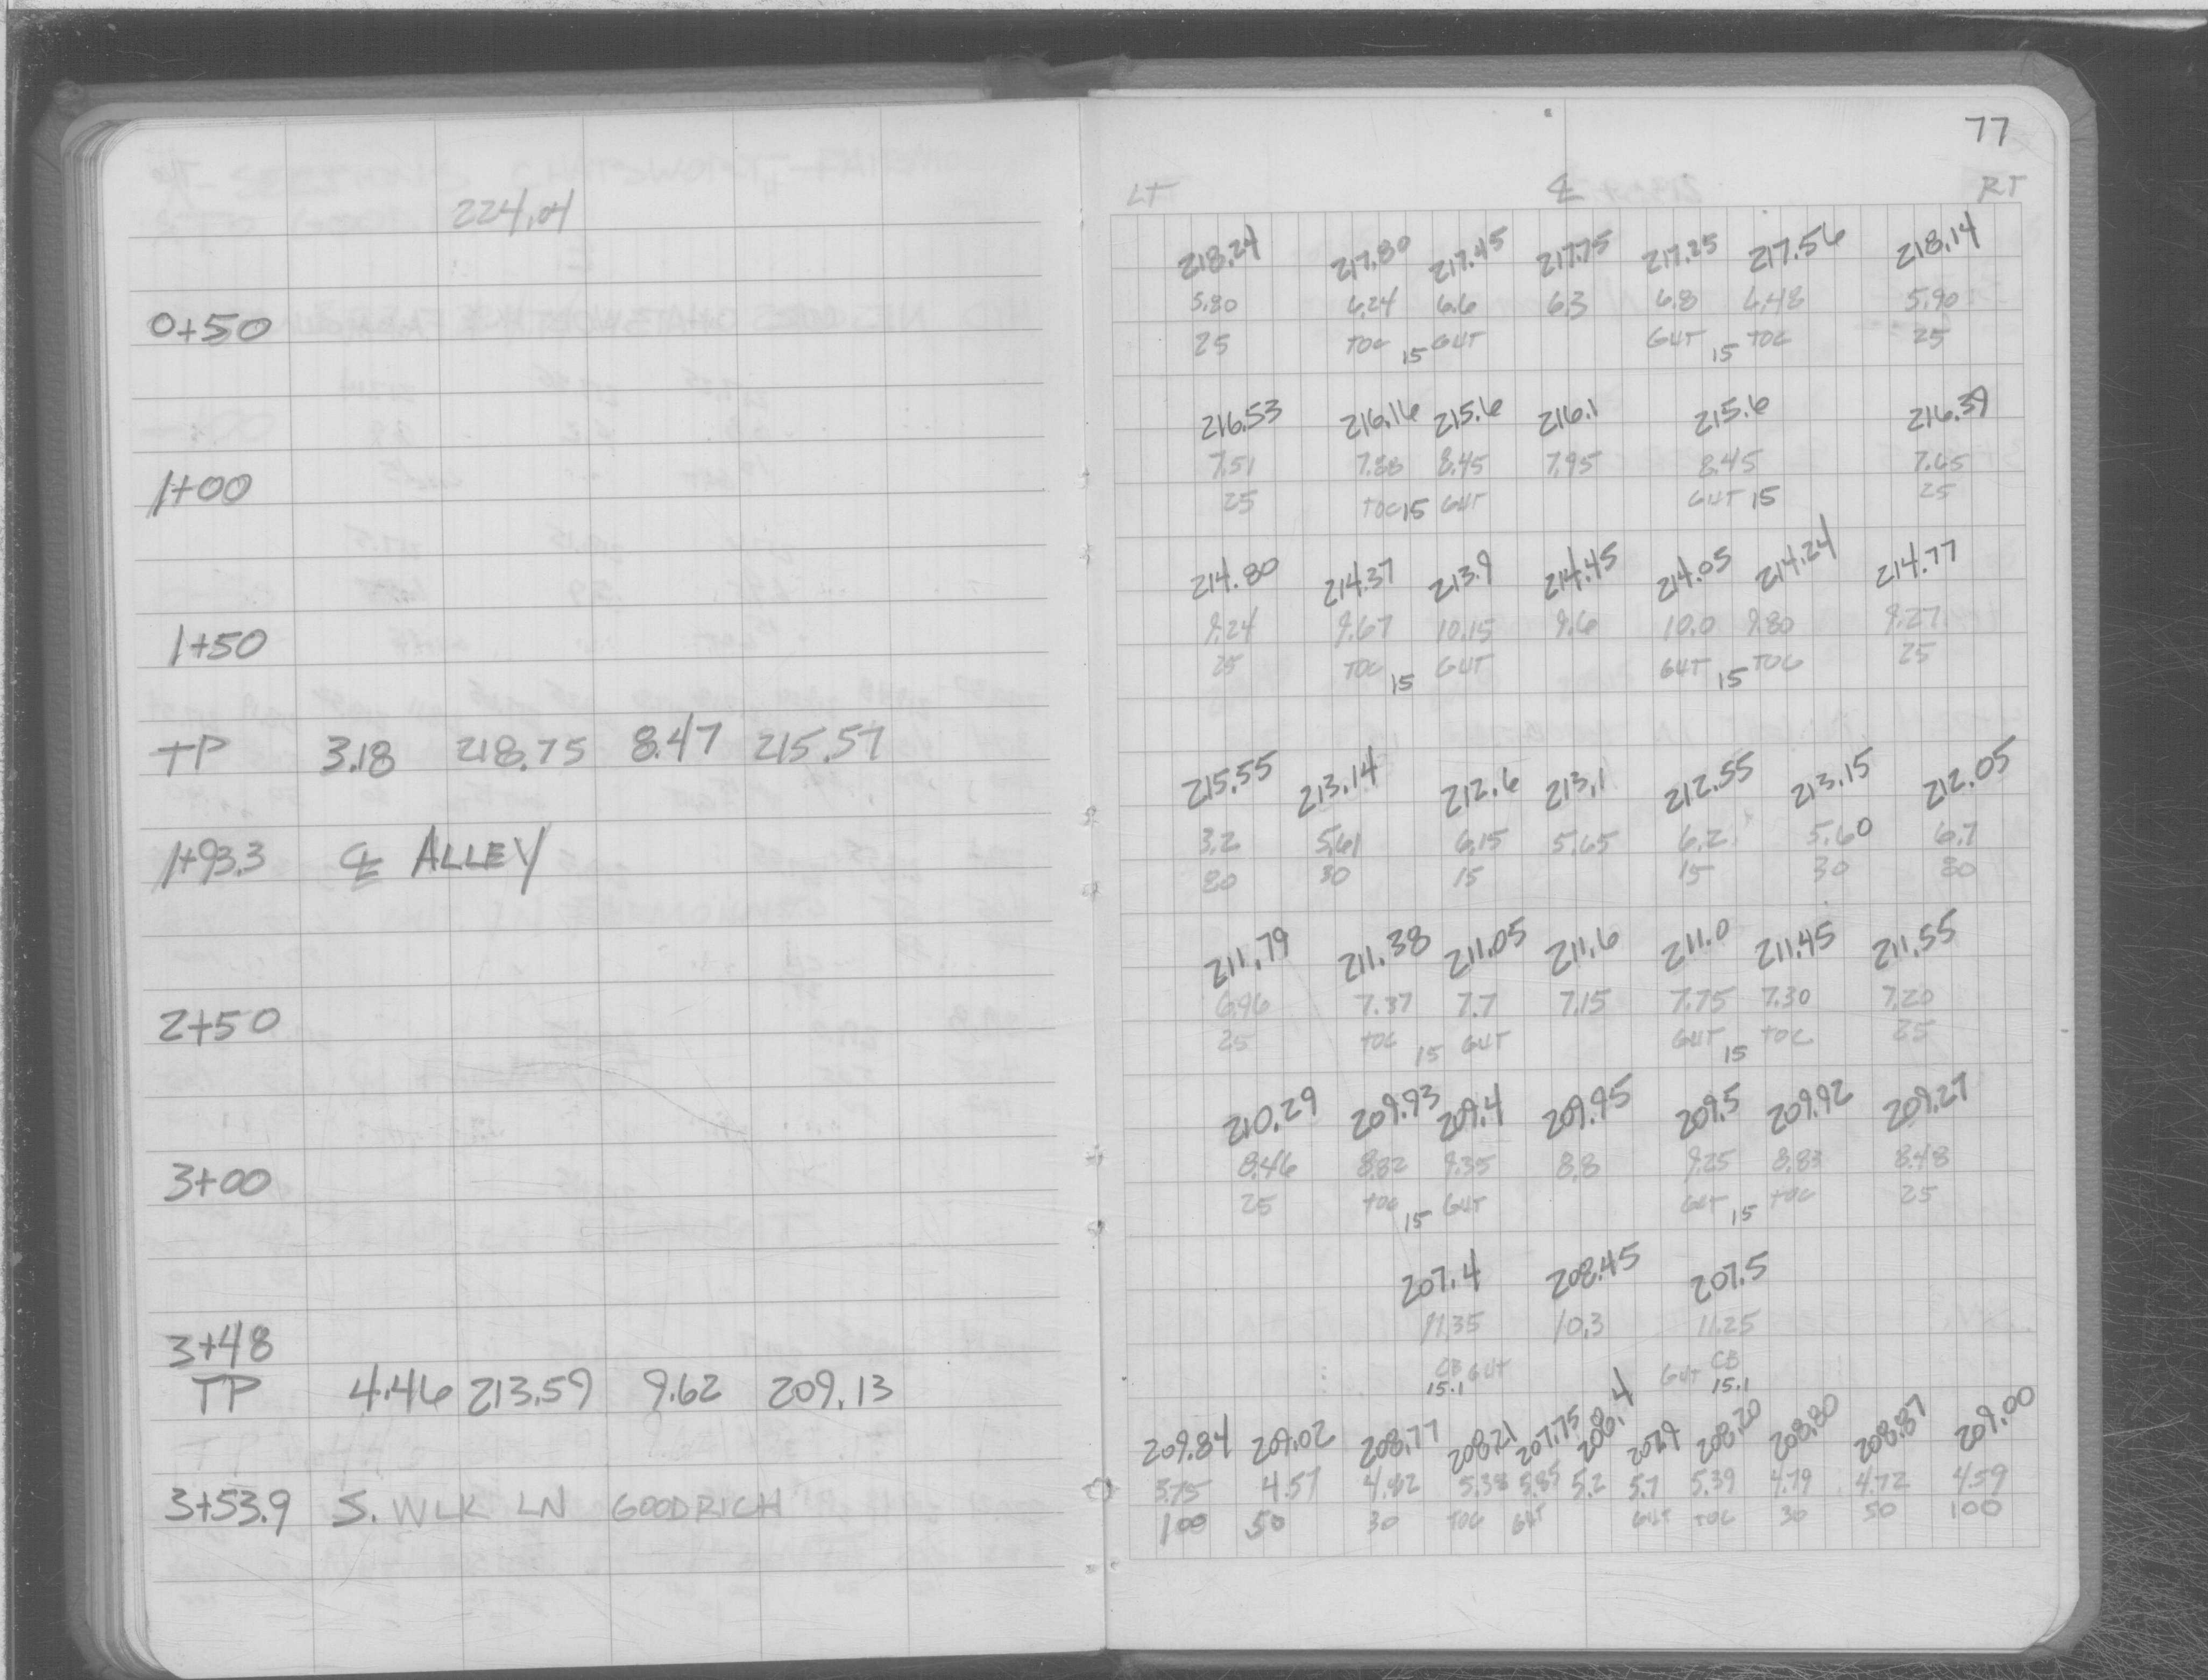 77
LT ℄ RT
224.04
218.24 217.80 217.45 217.75 217.25 217.56 218.14
0+50 5.80 6.24 6.6 6.3 6.8 6.48 5.90
25 TOC 15 GUT GUT 15 TOC 25
216.53 216.16 215.6 216.1 215.6 216.39
1+00 7.51 7.88 8.45 7.95 8.45 7.65
25 TOC 15 GUT GUT 15 25
214.80 214.37 213.9 214.45 214.05 214.24 214.77
1+50 9.24 9.67 10.15 9.6 10.0 9.80 9.27
25 TOC 15 GUT GUT 15 TOC 25
TP 3.18 218.75 8.47 215.57
215.55 213.14 212.6 213.1 212.55 213.15 212.05
1+93.3 ℄ ALLEY 3.2 5.61 6.15 5.65 6.2 5.60 6.7
80 30 15 15 30 80
211.79 211.38 211.05 211.6 211.0 211.45 211.55
2+50 6.96 7.37 7.7 7.15 7.75 7.30 7.20
25 TOC 15 GUT GUT 15 TOC 25
210.29 209.93 209.4 209.95 209.5 209.92 209.27
3+00 8.46 8.82 9.35 8.8 9.25 8.83 8.48
25 TOC 15 GUT GUT 15 TOC 25
207.4 208.45 207.5
3+48 11.35 10.3 11.25
CB GUT GUT CB
15.1 15.1
TP 4.46 213.59 9.62 209.13
209.84 209.02 208.77 208.21 207.75 208.4 207.9 208.20 208.80 208.87 209.00
3+53.9 S. WLK LN GOODRICH 3.75 4.57 4.82 5.38 5.85 5.2 5.7 5.39 4.79 4.72 4.59
100 50 30 TOC GUT GUT TOC 30 50 100